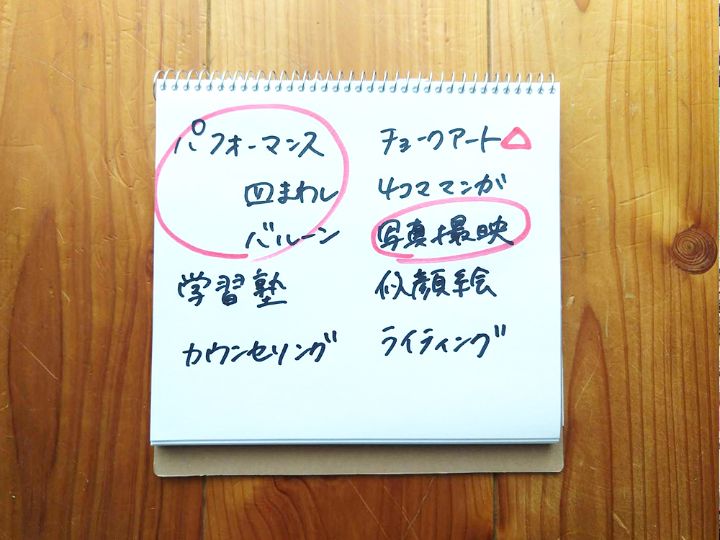 パフォーマンス
皿まわし
バルーン
学習塾
カウンセリング
チョークアート△
4コママンガ
写真撮映
似顔絵
ライティング